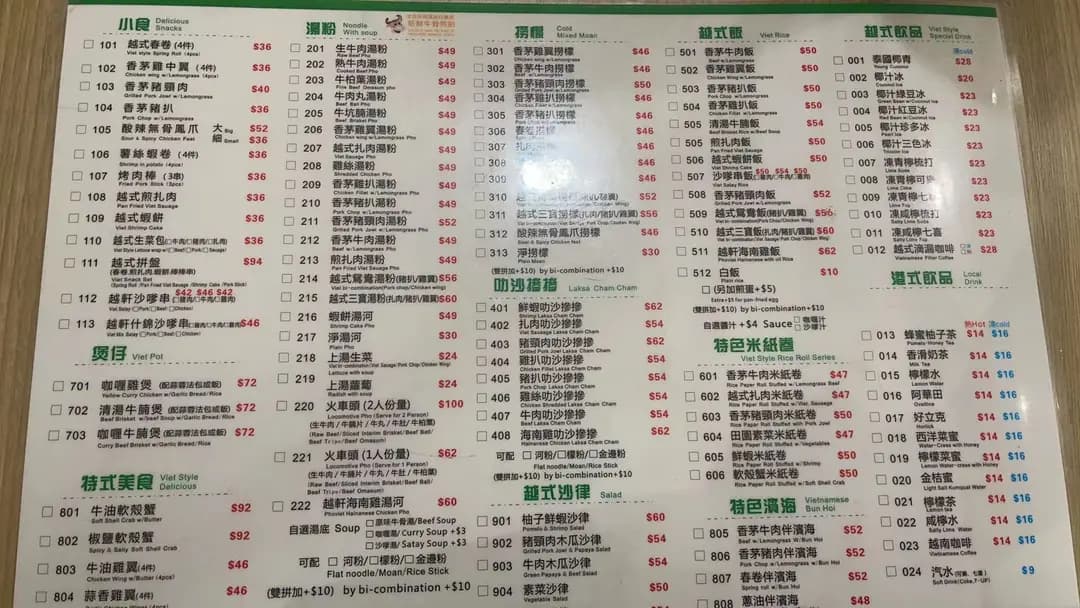 小食 Delicious Snacks
101 越式春卷 (4件) $36
Viet style Spring Roll (4pcs)
102 香茅雞中翼 (4件) $36
Chicken wing w/Lemongrass (4pcs)
103 香茅豬頸肉 $40
Grilled Pork Jowl w/Lemongrass
104 香茅豬扒 $36
Pork Chop w/Lemongrass
105 酸辣無骨鳳爪 大 Big $52
Sour & Spicy Chicken Feet 細 Small $36
106 薯絲蝦卷 (4件) $36
Shrimp in potato (4pcs)
107 烤肉棒 (3串) $36
Fried Pork Stick (3pcs)
108 越式煎扎肉 $36
Pan Fried Viet Sausage
109 越式蝦餅 $36
Viet Shrimp Cake
110 越式生菜包(□牛肉/□豬肉/□扎肉) $36
Viet Style Lettuce wrap w/□Beef/□Pork/□Sausage
111 越式拼盤 $94
(春卷,煎扎肉,蝦餅,棒棒串)
Viet Snack Set
(Spring Roll /Pan Fried Viet Sausage /Shrimp Cake /Pork Stick)
112 越軒沙嗲串 $42 $46 $42 (□豬肉/□牛肉/□雞肉)
Viet Satay (□Pork/□Beef/□Chicken)
113 越軒什錦沙嗲串(□豬肉/□牛肉/□雞肉) $46
Viet Mix Satay (□Pork/□Beef/□Chicken)
煲仔 Viet Pot
701 咖喱雞煲 (配蒜蓉法包或飯) $72
Yellow Curry Chicken w/Garlic Bread/Rice
702 清湯牛腩煲 (配蒜蓉法包或飯) $72
Beef Brisket w/Soup w/Garlic Bread/Rice
703 咖喱牛腩煲 (配蒜蓉法包或飯) $72
Curry Beef Brisket w/Garlic Bread/Rice
特式美食 Viet Style Delicious
801 牛油軟殼蟹 $92
Soft Shell Crab w/Butter
802 椒鹽軟殼蟹 $92
Spicy & Salty Soft Shell Crab
803 牛油雞翼(4件) $46
Chicken Wing w/Butter (4pcs)
804 蒜香雞翼(4件) $46
湯粉 Noodle With soup
201 生牛肉湯粉 $49
Raw Beef Pho
202 熟牛肉湯粉 $49
Cooked Beef Pho
203 牛柏葉湯粉 $49
Fine Beef Omasum pho
204 牛肉丸湯粉 $49
Beef Ball Pho
205 牛坑腩湯粉 $49
Beef Brisket Pho
206 香茅雞翼湯粉 $49
Chicken wing w/Lemongrass Pho
207 越式扎肉湯粉 $49
Viet Sausage Pho
208 雞絲湯粉 $49
Shredded Chicken Pho
209 香茅雞扒湯粉 $49
Chicken Fillet w/Lemongrass Pho
210 香茅豬扒湯粉 $49
Pork Chop w/Lemongrass Pho
211 香茅豬頸肉湯粉 $52
Grilled Pork Jowl w/Lemongrass Pho
212 香茅牛肉湯粉 $49
Beef w/Lemongrass Pho
213 煎扎肉湯粉 $49
Pan Fried Viet Sausage Pho
214 越式鴛鴦湯粉(豬扒/雞翼) $56
Viet bi-combination(Pork chop/Chicken wing)
215 越式三寶湯粉(扎肉/豬扒/雞翼) $60
216 蝦餅湯河 $49
Shrimp Cake Pho
217 淨湯河 $30
Plain Pho
218 上湯生菜 $24
Lettuce with soup
219 上湯蘿蔔 $24
Radish with soup
220 火車頭 (2人份量) $100
Locomotive Pho (Serve for 2 Person)
(生牛肉 / 牛腩片 / 牛丸 / 牛肚 / 牛柏葉)
(Raw Beef/Sliced Interim Brisket/Beef Ball/
Beef Tripe/Beef Omasum)
221 火車頭 (1人份量) $62
Locomotive Pho (Serve for 1 Person)
(生牛肉 / 牛腩片 / 牛丸 / 牛肚 / 牛柏葉)
(Raw Beef/Sliced Interim Brisket/Beef Ball/
Beef Tripe/Beef Omasum)
222 越軒海南雞湯河 $60
Phoviet Hainanese Chicken Pho
自選湯底 Soup □原味牛骨湯/Beef Soup
□咖喱湯/ Curry Soup +$3
□沙嗲湯/ Satay Soup +$3
可配 □河粉/□檬粉/□金邊粉
Flat noodle/Moan/Rice Stick
(雙拼加+$10) by bi-combination +$10
撈檬 Cold Mixed Moan
301 香茅雞翼撈檬 $46
Chicken wing w/Lemongrass
302 香茅牛肉撈檬 $46
Beef w/Lemongrass
303 香茅豬頸肉撈檬 $50
Grilled Pork Jowl w/Lemongrass
304 香茅雞扒撈檬 $46
Chicken Fillet w/Lemongrass
305 香茅豬扒撈檬 $46
Pork Chop w/Lemongrass
306 春卷撈檬 $46
307 扎肉撈檬 $46
308 $46
309 $50
310 $52
311 越式三寶撈檬(扎肉/豬扒/雞翼) $56
312 酸辣無骨鳳爪撈檬 $46
Sour & Spicy Chicken feet
313 淨撈檬 $30
Plain Moan
(雙拼加+$10) by bi-combination +$10
叻沙摻摻 Laksa Cham Cham
401 鮮蝦叻沙摻摻 $62
Shrimp Laksa Cham Cham
402 扎肉叻沙摻摻 $54
Viet Sausage Laksa Cham Cham
403 豬頸肉叻沙摻摻 $62
Grilled Pork Jowl Laksa Cham Cham
404 雞扒叻沙摻摻 $54
Chicken Fillet Laksa Cham Cham
405 豬扒叻沙摻摻 $54
Pork Chop Laksa Cham Cham
406 雞絲叻沙摻摻 $54
Chicken Shredded Laksa Cham Cham
407 牛肉叻沙摻摻 $54
Beef Laksa Cham Cham
408 海南雞叻沙摻摻 $62
Hainanese Chicken Laksa Cham Cham
可配 □河粉/□檬粉/□金邊粉
Flat noodle/Moan/Rice Stick
(雙拼加+$10) by bi-combination+$10
越式沙律 Salad
901 柚子鮮蝦沙律 $60
Pomelo & Shrimp Salad
902 豬頸肉木瓜沙律 $54
Grilled Pork Jowl & Papaya Salad
903 牛肉木瓜沙律 $54
Green Papaya & Beef Salad
904 素菜沙律 $50
Vegetable Salad
越式飯 Viet Rice
501 香茅牛肉飯 $50
Beef w/Lemongrass
502 香茅雞翼飯 $50
Chicken Wing w/Lemongrass
503 香茅豬扒飯 $50
Pork Chop w/Lemongrass
504 香茅雞扒飯 $50
Chicken Fillet w/Lemongrass
505 清湯牛腩飯 $50
Beef Brisket Rice w/Beef Soup
505 煎扎肉飯 $50
Pan Fried Viet Sausage
506 越式蝦餅飯 $50
Viet Shrimp Cake
507 沙嗲串飯 $50 $54 $50 (□豬肉/□牛肉/□雞肉)
Viet Satay Rice
508 香茅豬頸肉飯 $52
Grilled Pork Jowl w/Lemongrass
509 越式鴛鴦飯(豬扒/雞翼) $56
Viet bi-combination(Pork Chop/Chicken Wing)
510 越式三寶飯(扎肉/豬扒/雞翼) $60
511 越軒海南雞飯 $62
Phoviet Hainanese with oil Rice
512 白飯 $10
□(另加煎蛋+$5)
Extra+$5 for pan-fried egg
(雙拼加+$10) by bi-combination+$10
自選醬汁 +$4 Sauce □咖喱汁 □沙嗲汁
特色米紙卷
Viet Style Rice Roll Series
601 香茅牛肉米紙卷 $47
Rice Paper Roll Stuffed w/Lemongrass Beef
602 越式扎肉米紙卷 $47
Rice Paper Roll Stuffed w/Viet. Sausage
603 香茅豬頸肉米紙卷 $50
Rice Paper Roll Stuffed with Pork Jowl
604 田園素菜米紙卷 $47
Rice Paper Roll Stuffed w/Vegetables
605 鮮蝦米紙卷 $50
Rice Paper Roll Stuffed w/Shrimp
606 軟殼蟹米紙卷 $50
Rice Paper Roll Stuffed w/Soft Shell Crab
特色濱海 Vietnamese Bun Hoi
805 香茅牛肉伴濱海 $52
Beef w/Lemongrass W/Bun Hoi
806 香茅豬肉伴濱海 $52
Pork Chop w/Lemongrass W/Bun Hoi
807 春卷伴濱海 $52
Spring roll w/Bun Hoi
808 蔥油伴濱海 $48
越式飲品 Viet Style Special Drink
凍cold
001 泰國椰青 $28
Young Coconut
002 椰汁冰 $20
Coconut Ice
003 椰汁綠豆冰 $23
Green Bean w/Coconut Ice
004 椰汁紅豆冰 $23
Red Bean w/Coconut Ice
005 椰汁珍多冰 $23
006 椰汁三色冰 $23
Tricolor Ice
007 凍青檸梳打 $23
Lime Soda
008 凍青檸可樂 $23
Lime Coke
009 凍青檸七喜 $23
Lime 7up
010 凍咸檸梳打 $23
Salty Lime Soda
011 凍咸檸七喜 $23
Salty Lime 7up
012 越式滴漏咖啡 $28
Vietnamese Filter Coffee
港式飲品 Local Drink
熱Hot 凍cold
013 蜂蜜柚子茶 $14 $16
Pomelo Honey Tea
014 香滑奶茶 $14 $16
Milk Tea
015 檸檬水 $14 $16
Lemon Water
016 阿華田 $14 $16
Ovaltine
017 好立克 $14 $16
Horlick
018 西洋菜蜜 $14 $16
Water-Cress with Honey
019 檸檬菜蜜 $14 $16
Lemon Water-cress with Honey
020 金桔蜜 $14 $16
Light Salt Kumquat Water
021 檸檬茶 $14 $16
Lemon tea
022 咸檸水 $14 $16
Salty Lime Water
023 越南咖啡 $14 $16
Vietnamese Coffee
024 汽水 (可樂、七喜) $9
Soft Drink(Coke,7-UP)